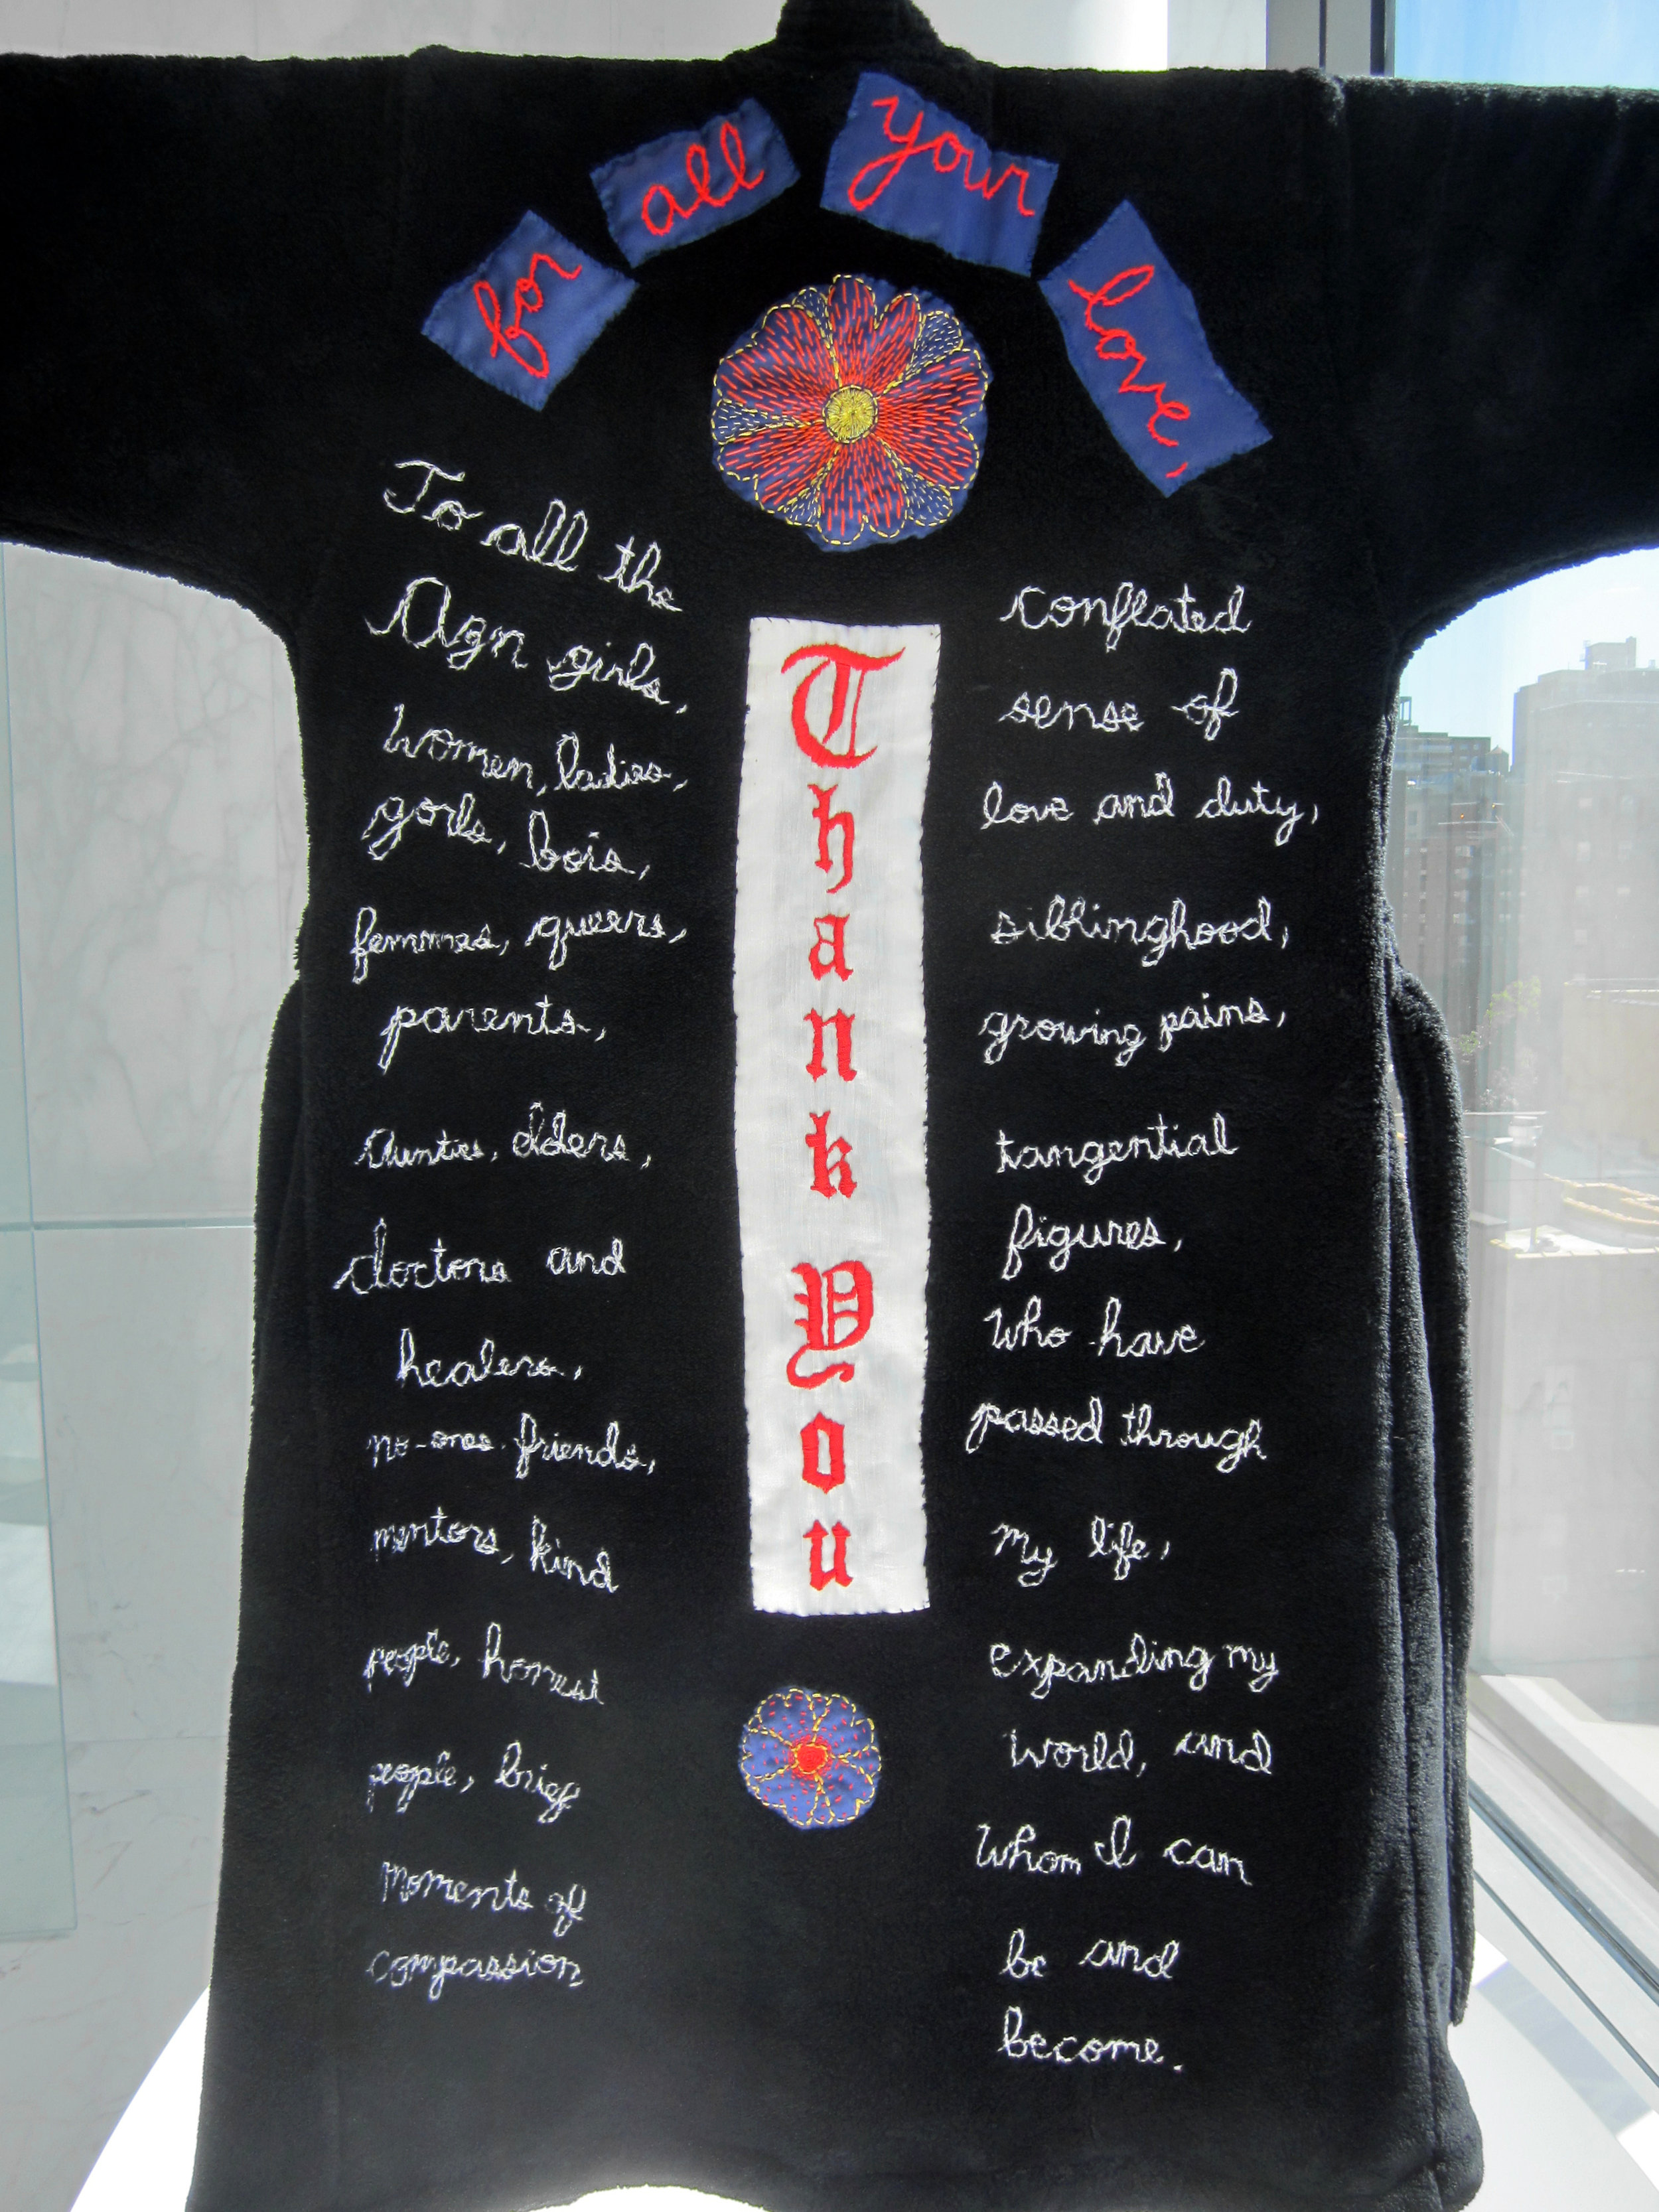 for all your love,
To all the
Azn girls,
women, ladies,
gorls, bois,
femmes, queers,
parents,
Aunties, elders,
doctors and
healers,
no-ones, friends,
mentors, kind
people, honest
people, brief
moments of
compassion
Thank You
conflated
sense of
love and duty,
siblinghood,
growing pains,
tangential
figures,
who have
passed through
my life,
expanding my
world, and
whom I can
be and
become.